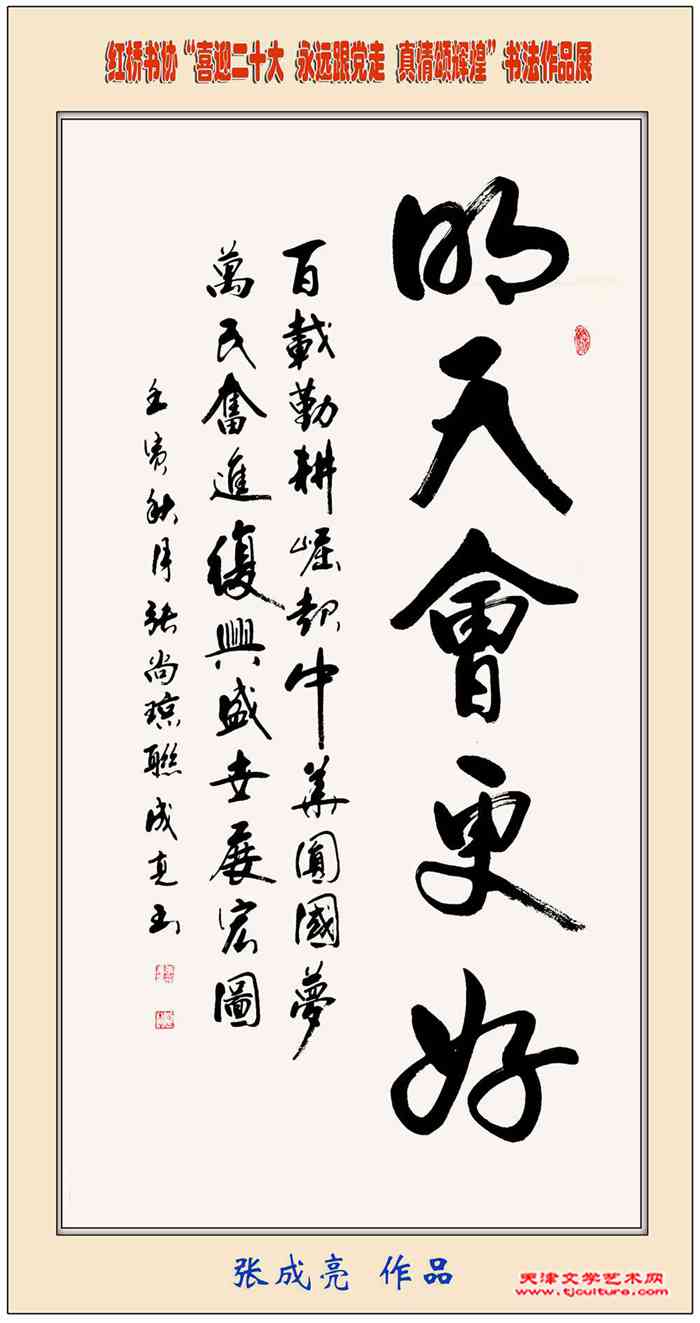 红桥书协“喜迎二十大 永远跟党走 真情颂辉煌”书法作品展
明天會更好
百載勤耕崛起中華圓國夢
萬民奮進復興盛世展宏圖
壬寅秋月張尚琼聯成亮书
张成亮 作品
天津文学艺术网
www.tjculture.com